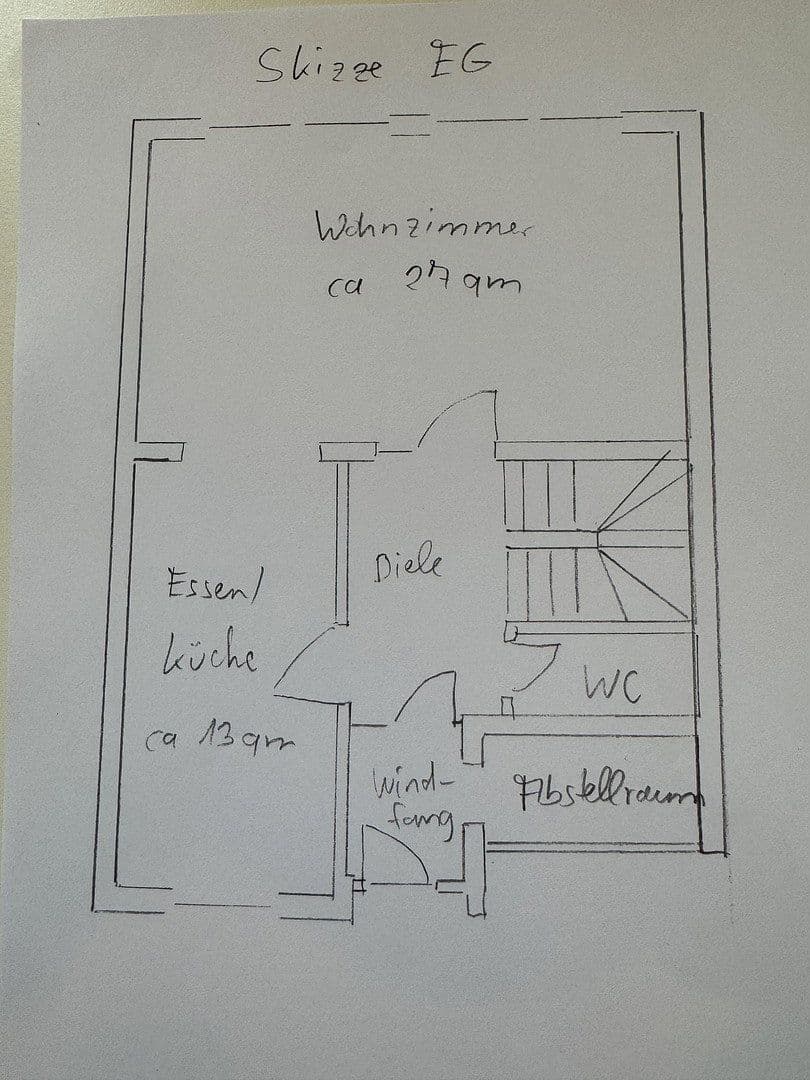 Skizze EG
Wohnzimmer
ca 27 qm
Diele
Essen/
küche
ca 13 qm
WC
Wind-
fang
Abstellraum